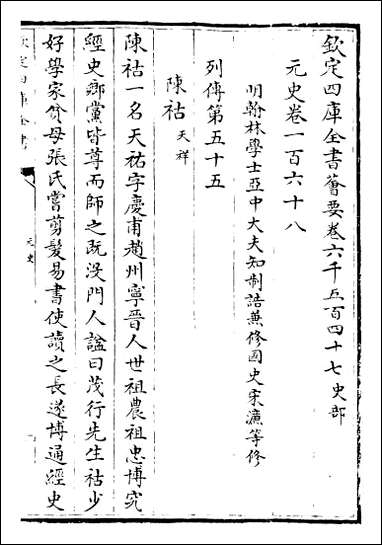 欽定四庫全書薈要卷六千五百四十七史部
元史卷一百六十八
明翰林學士亞中大夫知制誥兼修國史宋濂等修
列傳第五十五
陳祜天祥
陳祜一名天祐字慶甫趙州寧晉人世祖農祖忠博究
經史鄉黨皆尊而師之既没門人諡曰茂行先生祜少
好學家貧母張氏嘗剪髮易書使讀之長遂博通經史
欽定四庫全書
元史